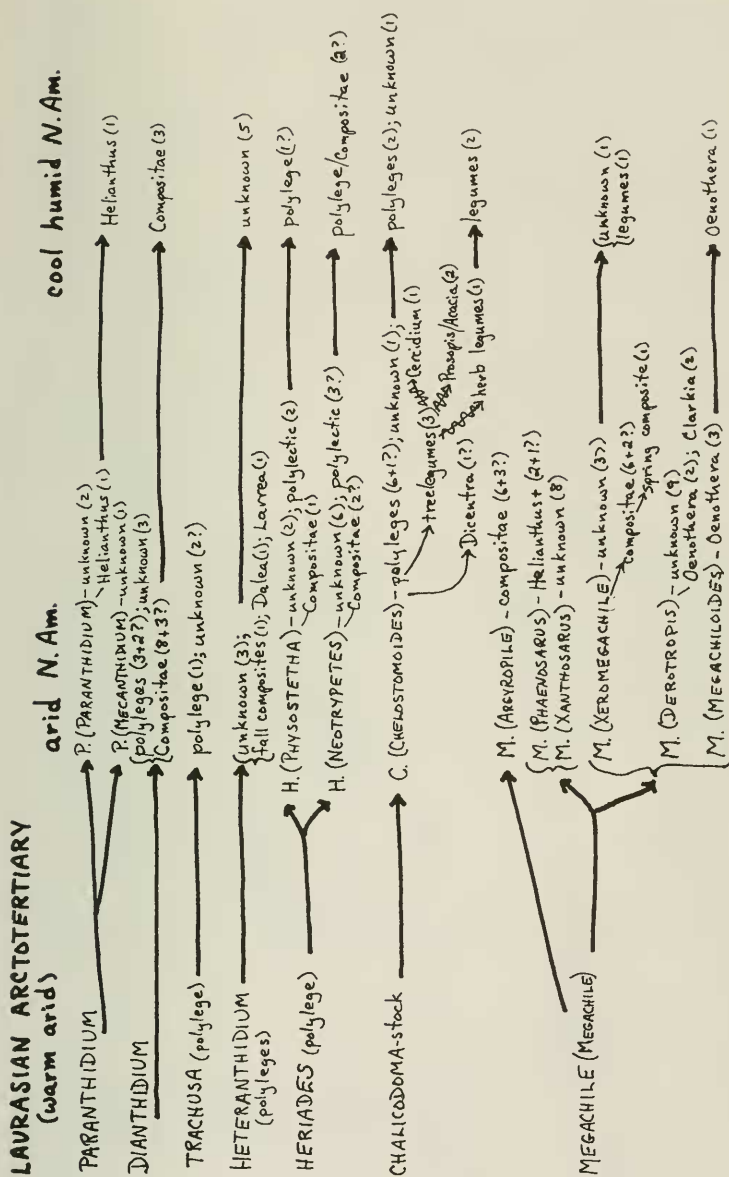 LAURASIAN ARCTOTERTIARY
(warm arid)
arid N. Am.
cool humid N. Am.
PARANTHIDIUM
P. (PARANTHIDIUM) - unknown (2)
Helianthus (1)
Helianthus (1)
P. (MECANTHIDIUM) - unknown (1)
DIANTHIDIUM
{polyleges (3+2?); unknown (3)
{Compositae (8+3?)
Compositae (3)
TRACHUSA (polylege)
polylege (1); unknown (2?)
HETERANTHIDIUM
(polyleges)
{unknown (3);
{fall composites (1); Dalea (1); Larrea (1)
unknown (5)
HERIADES (polylege)
H. (PHYSOSTETHA) - unknown (2); polylectic (2)
Compositae (1)
polylege (1?)
H. (NEOTRYPETES) - unknown (6); polylectic (3?)
Compositae (2?)
polylege/Compositae (2?)
CHALICODOMA-stock
C. (CHELOSTOMOIDES) - polyleges (6+1?); unknown (1);
polyleges (2); unknown (1)
tree legumes (3)
Cercidium (1)
Prosopis/Acacia (2)
Dicentra (1?)
herb legumes (1)
legumes (2)
MEGACHILE (MEGACHILE)
M. (ARGYROPILE) - compositae (6+3?)
{M. (PHAENOSARUS) - Helianthus + (2+1?)
{M. (XANTHOSARUS) - unknown (8)
(M. (XEROMEGACHILE) - unknown (37)
compositae (6+2?)
spring composite (1)
{unknown (1)
{legumes (1)
M. (DEROTROPIS) - unknown (9)
Oenothera (2); Clarkia (2)
M. (MEGACHILOIDES) - Oenothera (3)
Oenothera (1)